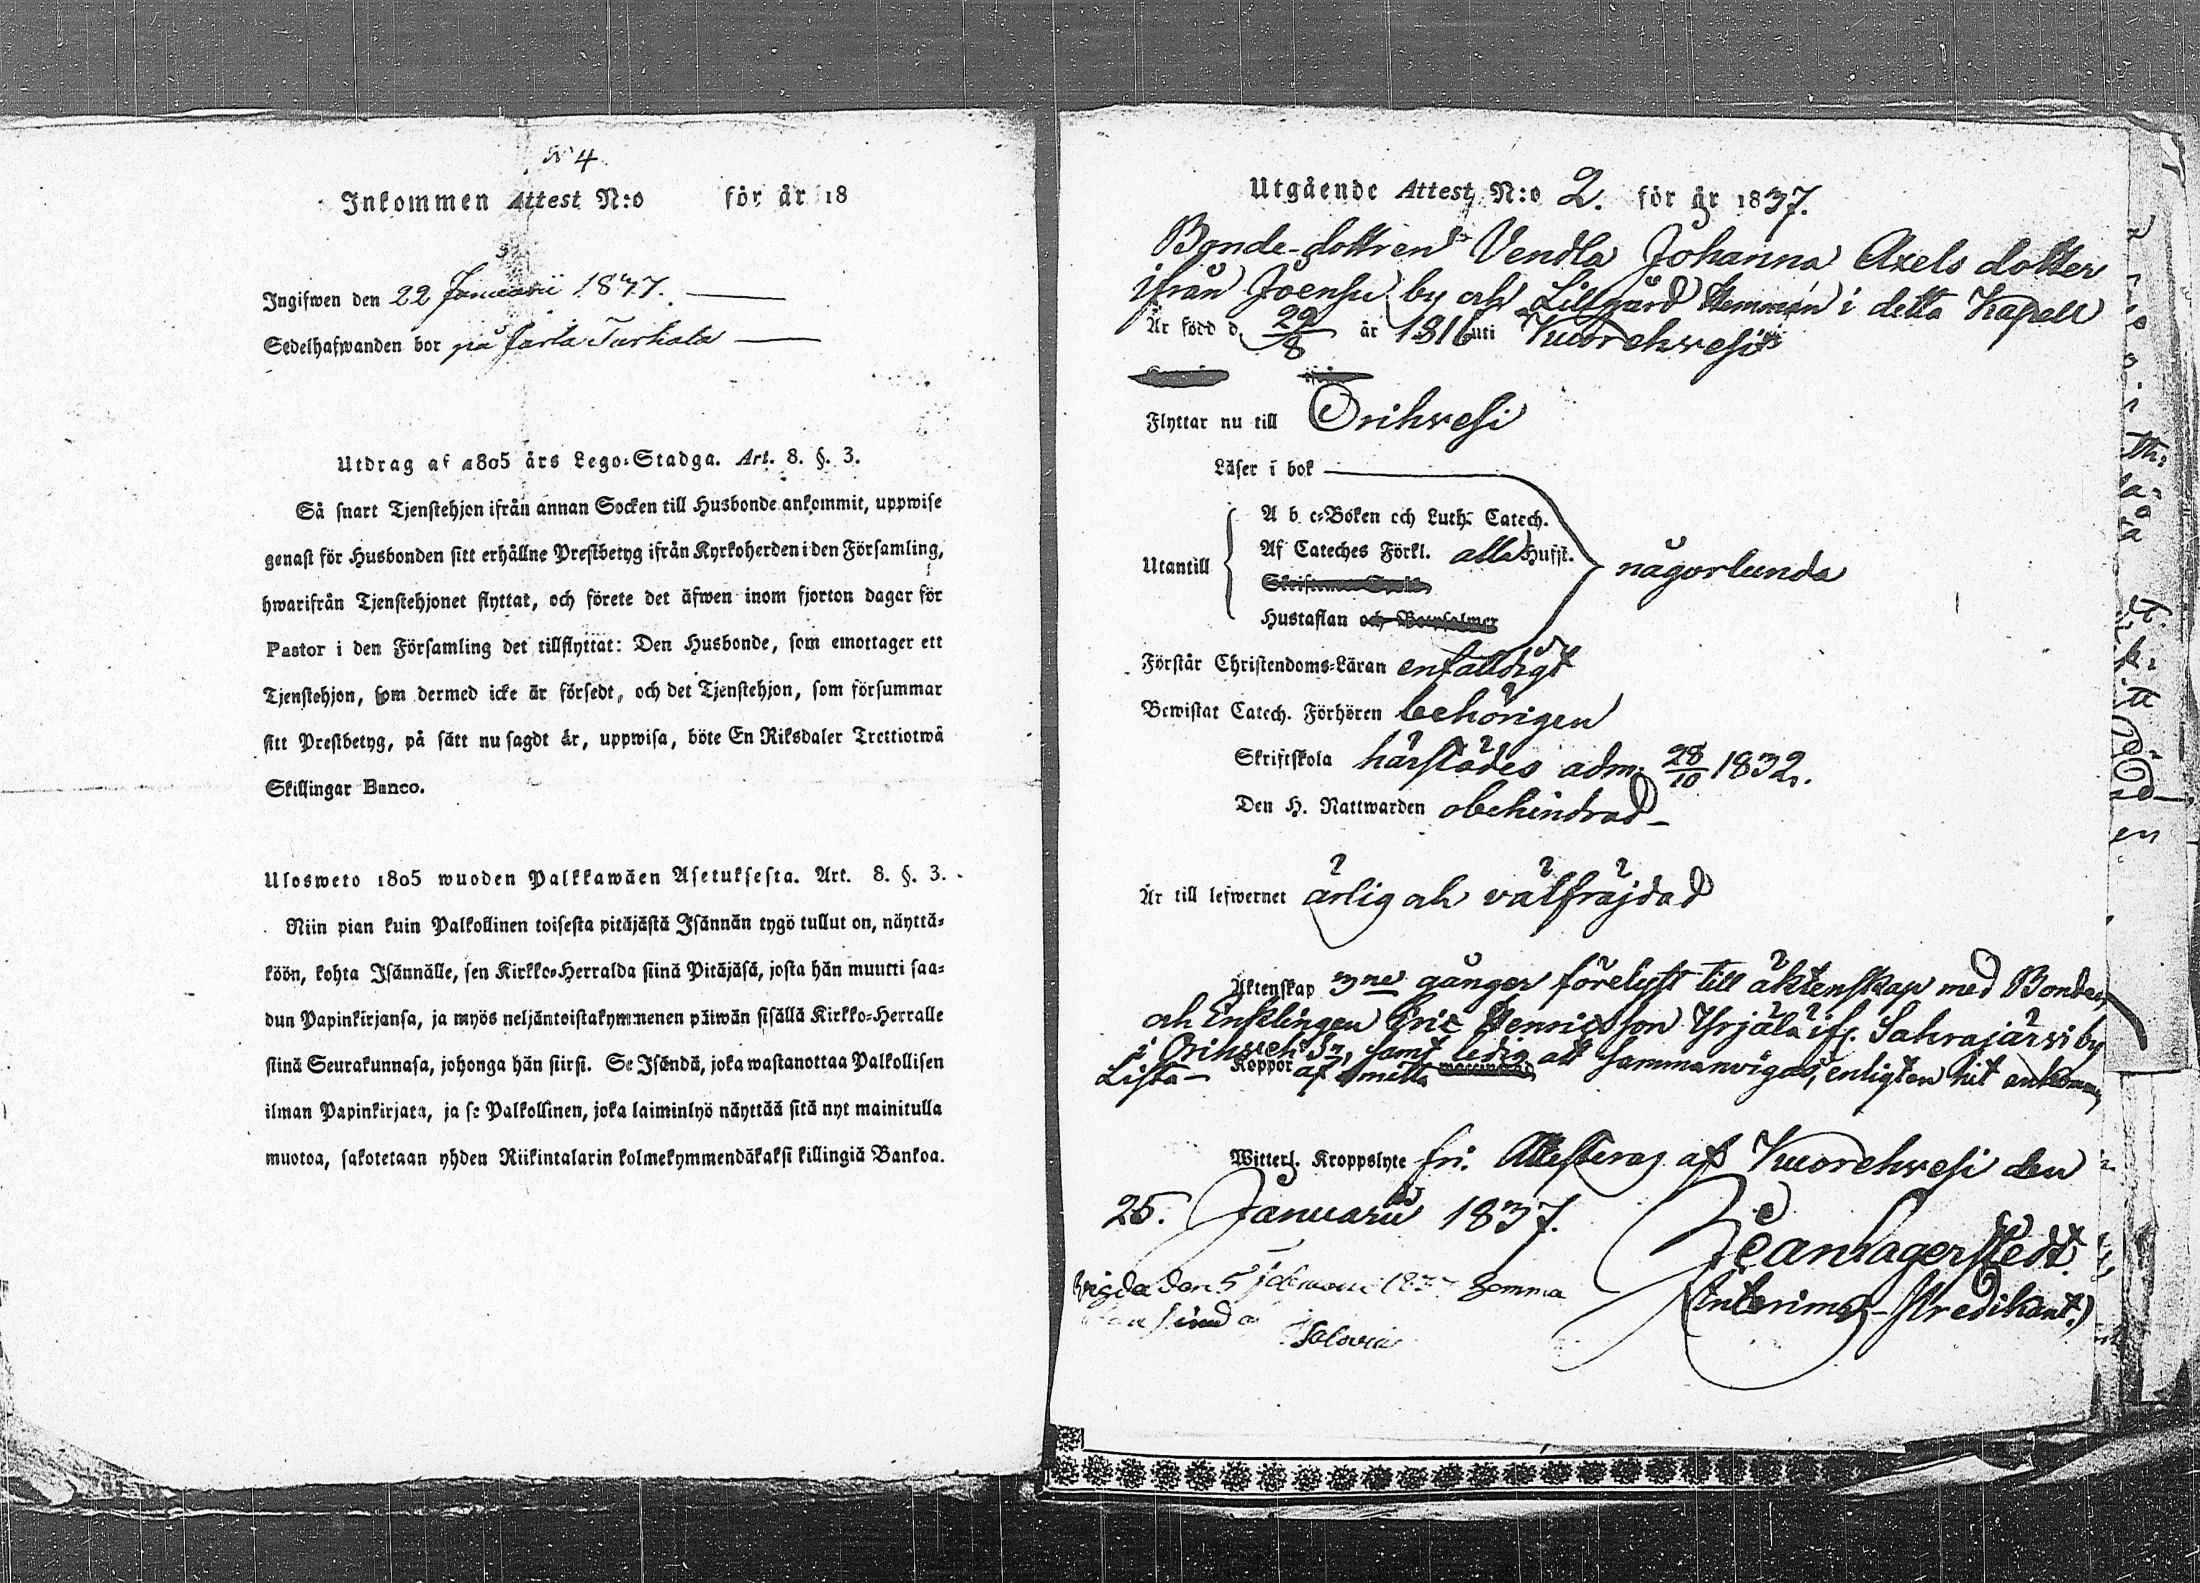 N 4
Inkommen Attest N:o för år 18
Ingifwen den 22 Januarii 1837.
Sedelhafwanden bor på
Utdrag af 1805 års Lego-Stadga. Art. 8. §. 3.
Så snart Tjenstehjon ifrån annan Socken till Husbonde ankommit, uppwise
genast för Husbonden sitt erhållne Prestbetyg ifrån Kyrkoherden i den Församling,
hwarifrån Tjenstehjonet flyttat, och förete det äfwen inom fjorton dagar för
Pastor i den Församling det tillflyttat: Den Husbonde, som emottager ett
Tjenstehjon, som dermed icke är försedt, och det Tjenstehjon, som försummar
sitt Prestbetyg, på sätt nu sagdt är, uppwisa, böte En Riksdaler Trettiotwå
Skillingar Banco.
Ulosweto 1805 wuoden Palkkawäen Asetuksesta. Art. 8. §. 3.
Niin pian kuin Palkollinen toisesta pitäjästä Isännän tygö tullut on, näyttä-
köön, kohta Isännälle, sen Kirkko-Herralda siinä Pitäjäsä, josta hän muutti saa-
dun Papinkirjansa, ja myös neljäntoistakymmenen päiwän sisällä Kirkko-Herralle
siinä Seurakunnasa, johonga hän siirsi. Se Isändä, joka wastanottaa Palkollisen
ilman Papinkirjata, ja se Palkollinen, joka laiminlyö näyttää sitä nyt mainitulla
muotoa, sakotetaan yhden Riikintalarin kolmekymmendäkaksi killingiä Bankoa.
Utgående Attest N:o 2. för år 1837.
Bonde-dottren Vendla Johanna Axels dotter
ifrån Joensu by och Lillgård Hemman i detta Kapell
Är född d. 29/8 år 1816 uti Kuorehvesi
Flyttar nu till Orihvesi
Läser i bok
A b c-Boken och Luth. Catech.
Utantill Af Cateches Förkl. alla Hufst. någorlunda
Hustaflan och Botpsalmer
Förstår Christendoms-Läran enfaldigt
Bewistat Catech. Förhören behörigen
Skriftskola härstädes adm. 28/10 1832.
Den H. Nattwarden obehindrad
Är till lefwernet ärlig och välfräjdad
Äktenskap 3ne gånger förelyst till äktenskap med Bonden
och Enklingen Eric Henricsson Yrjälä if. Sahrajärvi by
i Orihvesi Sn, samt ledig att sammanvigas, enligt en hit ankommen
Lista Koppor af smitta
Witterl. Kroppslyte fri. Attesteras af Kuorehvesi den
25. Januarii 1837.
Jean Lagerstedt.
(Interims-Predikant.)
Vigda den 5 Februarii 1837